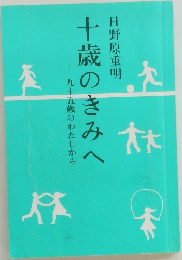 日野原重明
十歳のきみへ
九十五歳のわたしから